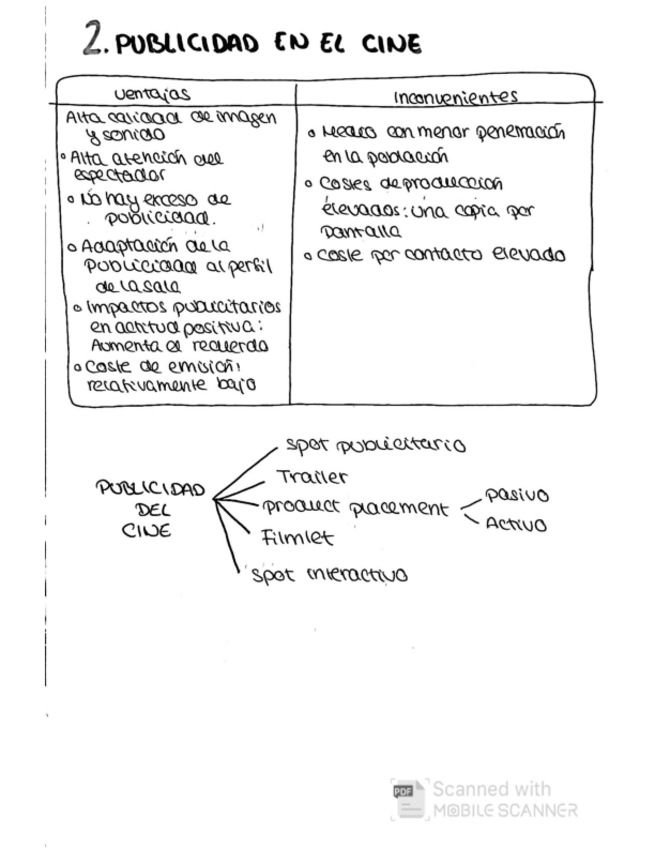 2. PUBLICIDAD EN EL CINE
ventajas
Alta calidad de imagen
y sonido
Alta atención del
espectador
No hay exceso de
publicidad.
Adaptación de la
Publicidad al perfil
de la sala
Impactos publicitarios
en actitud positiva:
Aumenta el recuerdo
Coste de emisión:
relativamente bajo
Inconvenientes
Medio con menor penetración
en la población
Costes de producción
elevados: una copia por
pantalla
Coste por contacto elevado
PUBLICIDAD
DEL
CINE
spot publicitario
Trailer
product placement
pasivo
Activo
Filmlet
spot interactivo
PDF
Scanned with
MOBILE SCANNER